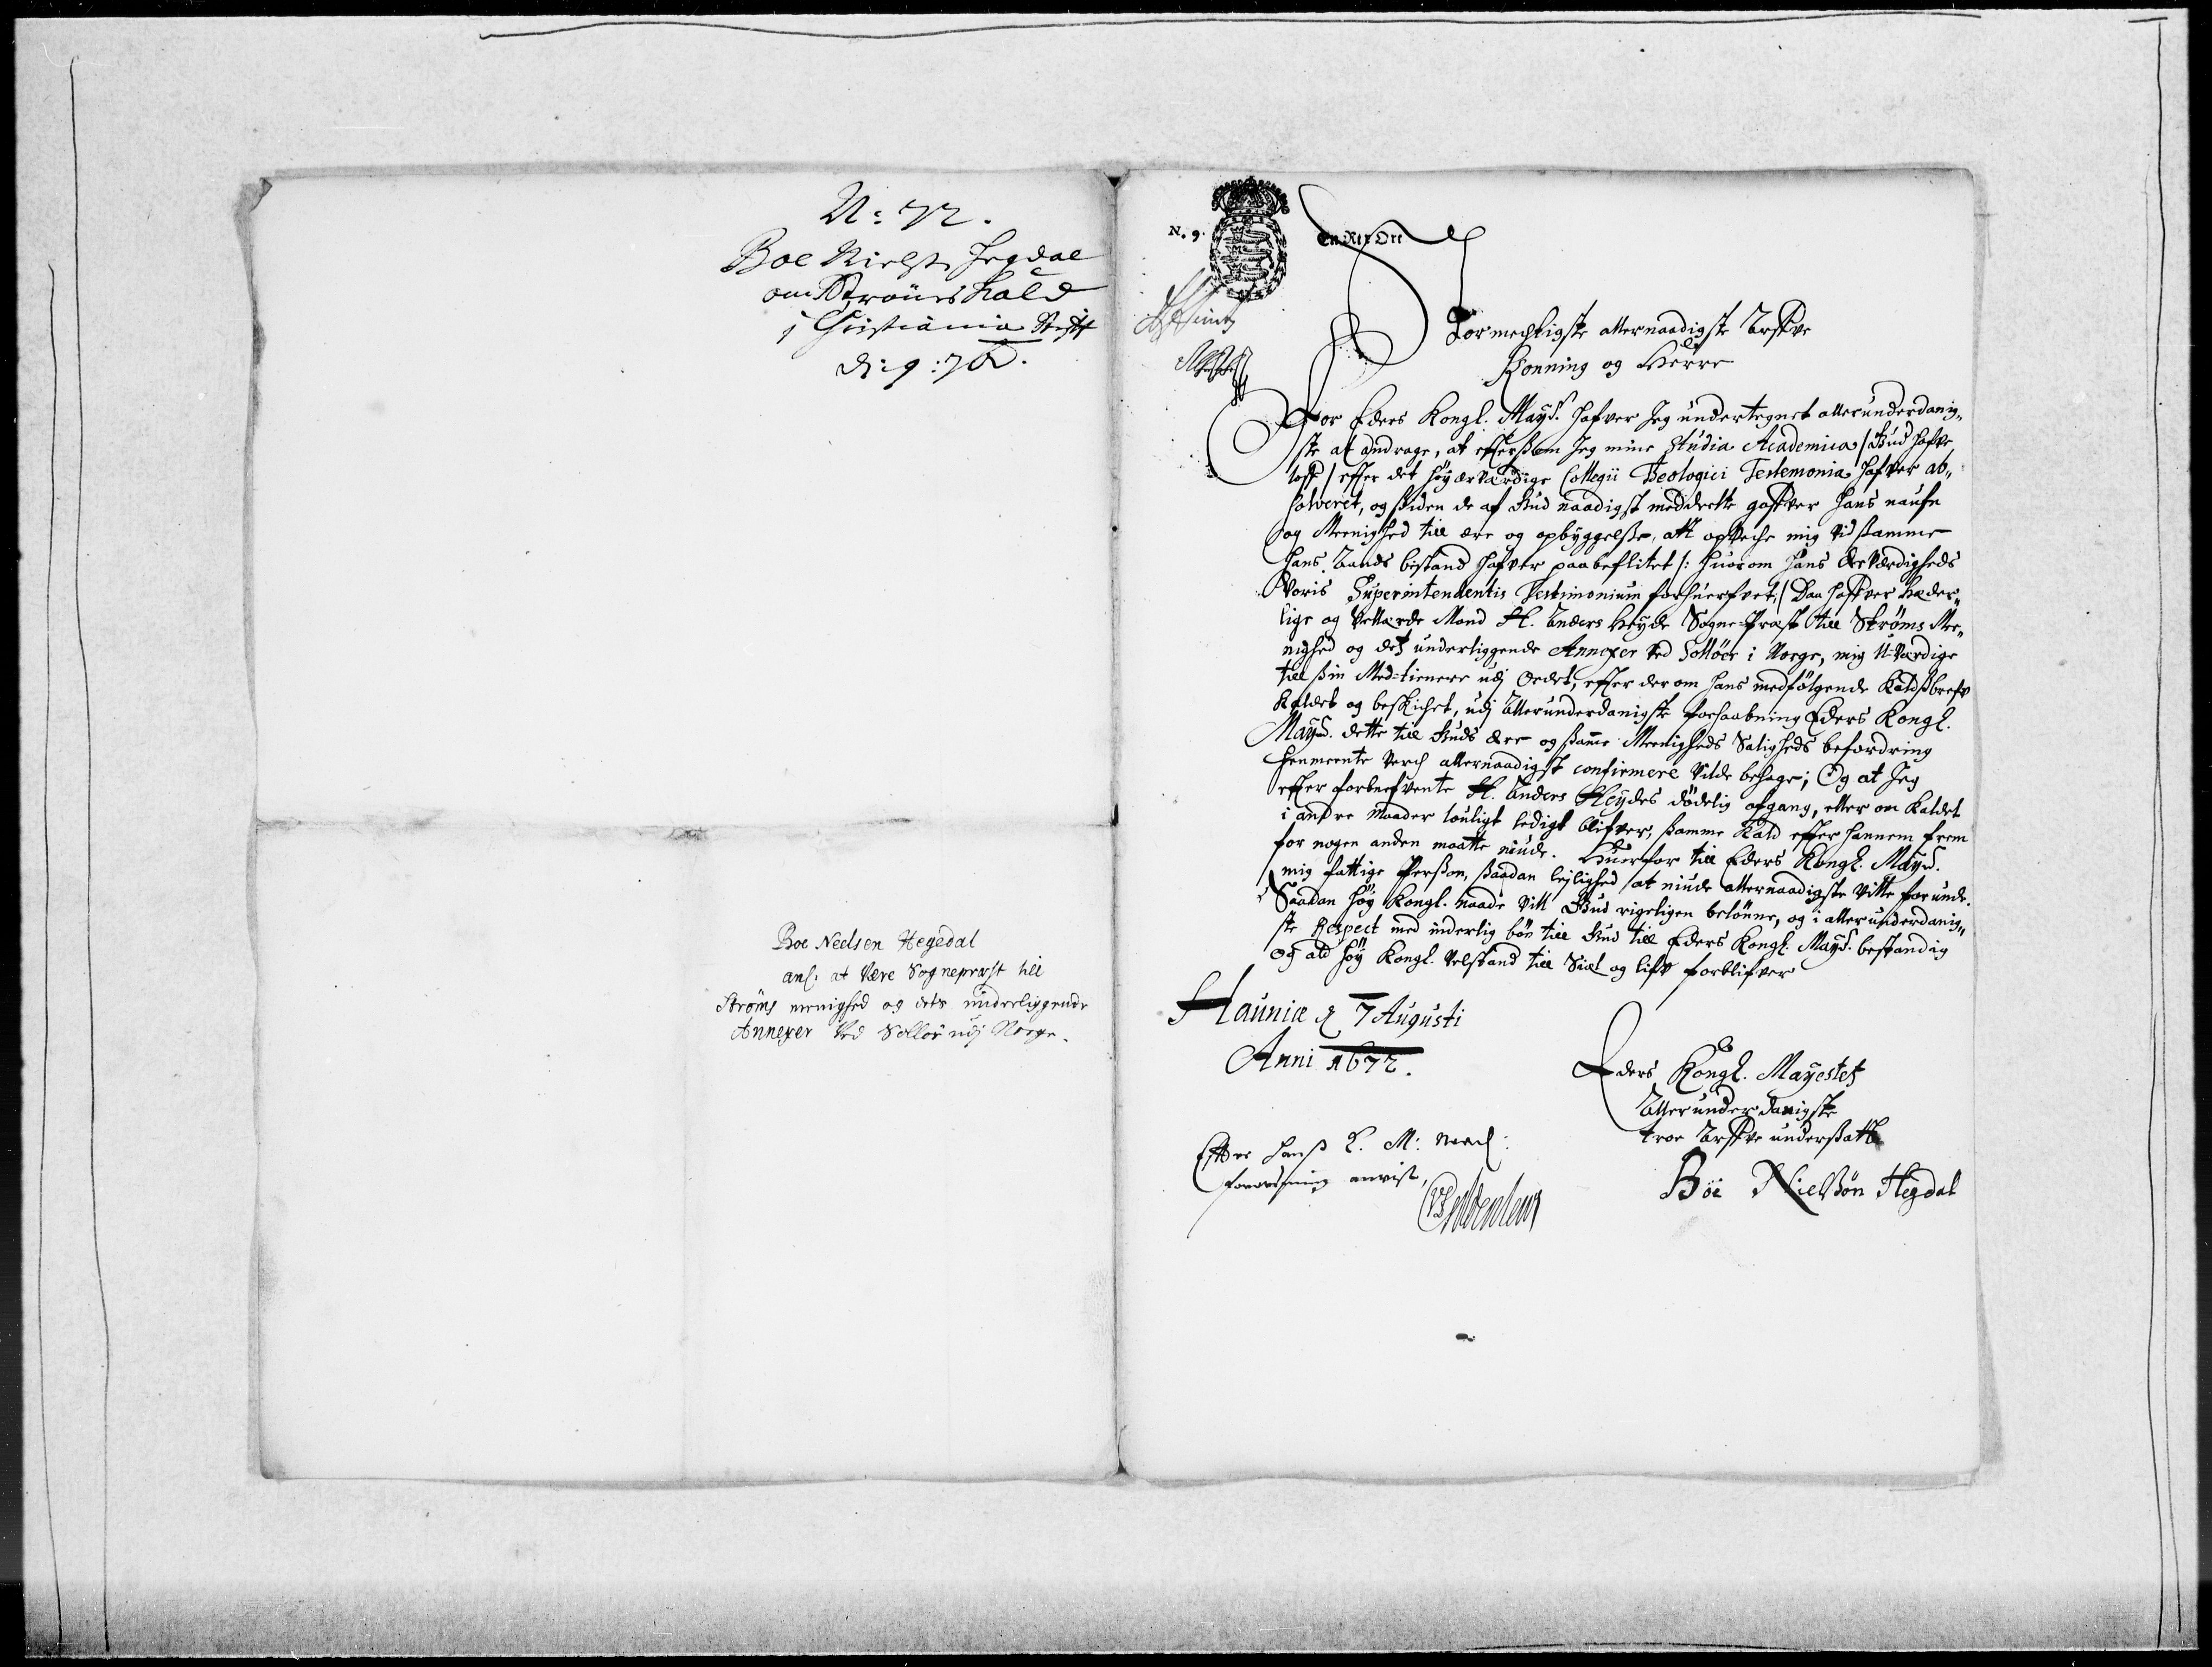 N: 72.
Boe Nielsø Hegdal
om Strøms kald
j Christiania Stift
d: 9: 7b.
Boe Neelsen Hegedal
anl: at være Sognepræst till
Strøms menighed og dets underliggende
Annexer ved Solløer udj Norge.
N. 9.
En Rix Ort
Stormechtigste allernaadigste Arffve
Konning og Herre
For Eders Kongl. Mayst. hafver Jeg undertegnet allerunderdanig„
ste at andrage, at efftersom Jeg mine Studia Academica / Gud hafve
loff / effter det høyærværdige Collegii Theologici Testemonia hafver ab„
solveret, og siden de af Gud naadigst meddeelte gaffver hans naufn
og Meenighed till ære og opbyggelße, att opveche mig vid ßamme
hans Aands bistand hafver paabeflitet /: huorom hans Ærværdigheds
Voris Superintendentis Testimonium forhuerfvet, / Daa haffver hæder„
lige og Vellærde Mand H. Anders Heyde Sogne-Præst till Strøms Mee„
nighed og dets underliggende Annexer ved Solløer i Norge, mig U-værdige
till ßin Med-tienere udj Ordet, effter derom hans medfølgende Kaldßbrefv
Kaldet og beskichet, udj Allerunderdanigste forhaabning Eders Kongl.
Mayst. dette till Guds ære og ßamme Meenigheds Saligheds befordring
henmeente Verch allernaadigst confirmere vilde behage; Og at Jeg
effter forbenefvente H. Anders Heydes dødelig afgang, eller om Kaldet
i andre Maader louligt ledigt blifver, ßamme Kald effter hannem frem
for nogen anden maatte niude. Huorfor till Eders Kongl. Mayst.
mig fattige Perßon, ßaadan lejlighed at niude allernaadigste ville forunde.
Saadan høy Kongl. naade vill Gud rigeligen belønne, og i allerunderdanig„
ste Respect med inderlig bøn till Gud till Eders Kongl. Mayst. bestandig
og ald høy Kongl. velstand till Siæl og lifv forblifver
Hauniæ d 7 Augusti
Anni 1672.
Eders Kongl. Mayestets
Allerunderdanigste
troe Arffve underßatth
Boe Nielßøn Hegdal
Efter hanß K. M:
forordning anvist,
Gyldenleu